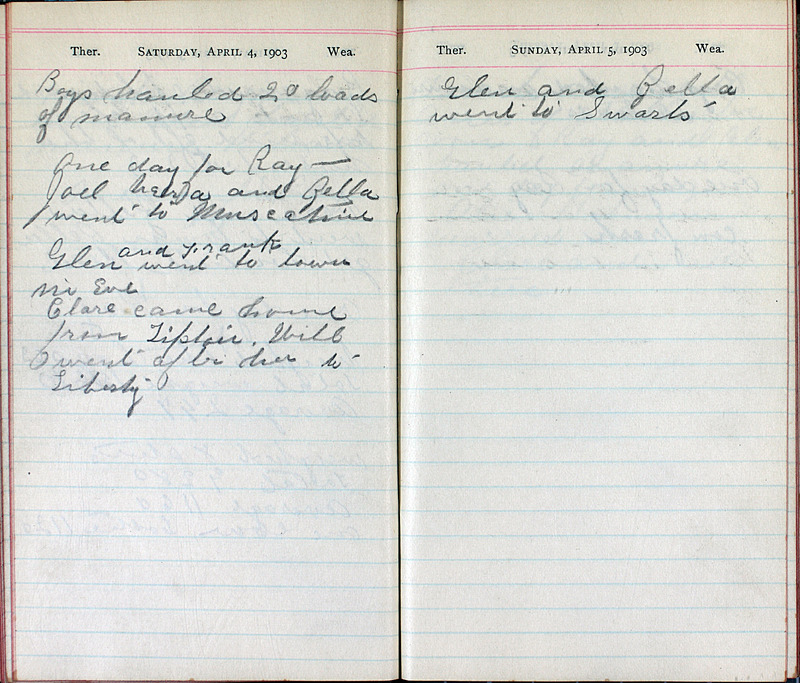 Ther. SATURDAY, APRIL 4, 1903 Wea.
Boys hauled 20 loads
of manure
One day for Ray —
Joel and Bella
went to Muscatine
and Frank
Glen went to town
in Eve
Clare came home
from Tipton. Will
went after her to
Liberty
Ther. SUNDAY, APRIL 5, 1903 Wea.
Glen and Bella
went to Swarts